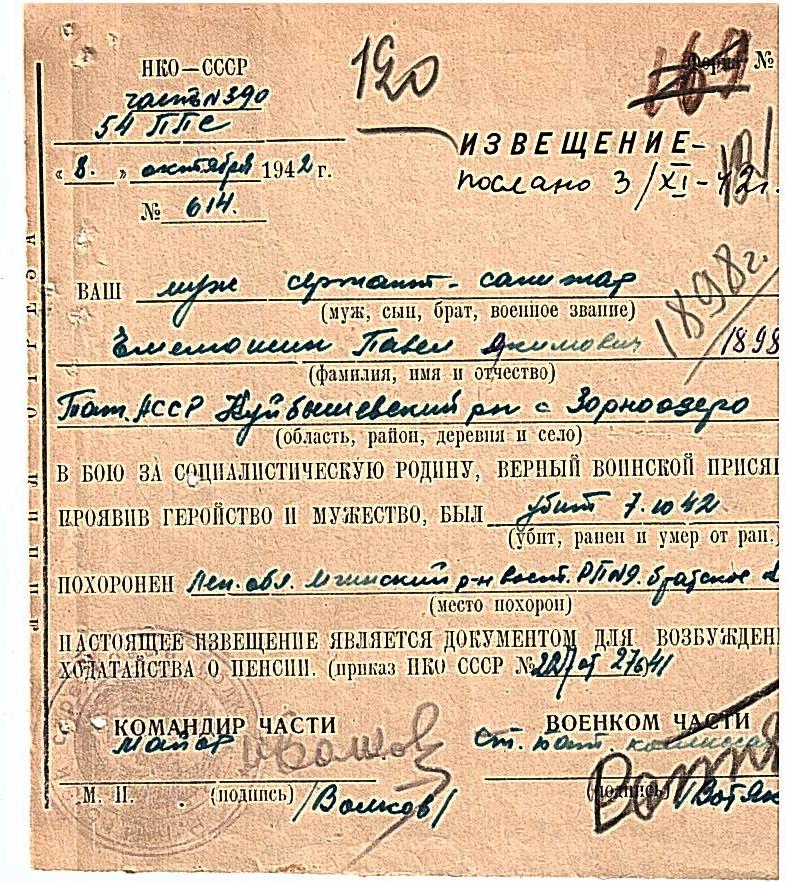 НКО—СССР
120
169
Форма №
часть N 390
54 ППС
ИЗВЕЩЕНИЕ-
131
„8.” октября 1942 г.
послано 3/XI-42г.
№ 614.
1898г.
ВАШ муж сержант-санитар
(муж, сын, брат, военное звание)
Емелюшин Павел Якимович 1898
(фамилия, имя и отчество)
Тат.АССР Куйбышевский рн с Зорноозеро
(область, район, деревня и село)
В БОЮ ЗА СОЦИАЛИСТИЧЕСКУЮ РОДИНУ, ВЕРНЫЙ ВОИНСКОЙ ПРИСЯГ
ПРОЯВИВ ГЕРОЙСТВО И МУЖЕСТВО, БЫЛ убит 7.10.42.
(убит, ранен и умер от ран.)
ПОХОРОНЕН Лен. обл. Мгинский р-н Вост. РП№9. братское
(место похорон)
НАСТОЯЩЕЕ ИЗВЕЩЕНИЕ ЯВЛЯЕТСЯ ДОКУМЕНТОМ ДЛЯ ВОЗБУЖДЕНИ
ХОДАТАЙСТВА О ПЕНСИИ. (приказ НКО СССР № 220 от 27641
КОМАНДИР ЧАСТИ ВОЕНКОМ ЧАСТИ
майор Ст. бат. комиссар
М. П. (подпись) /Волков/ (подпись) /Вотяк
ЛИНИЯ ОТРЕЗА